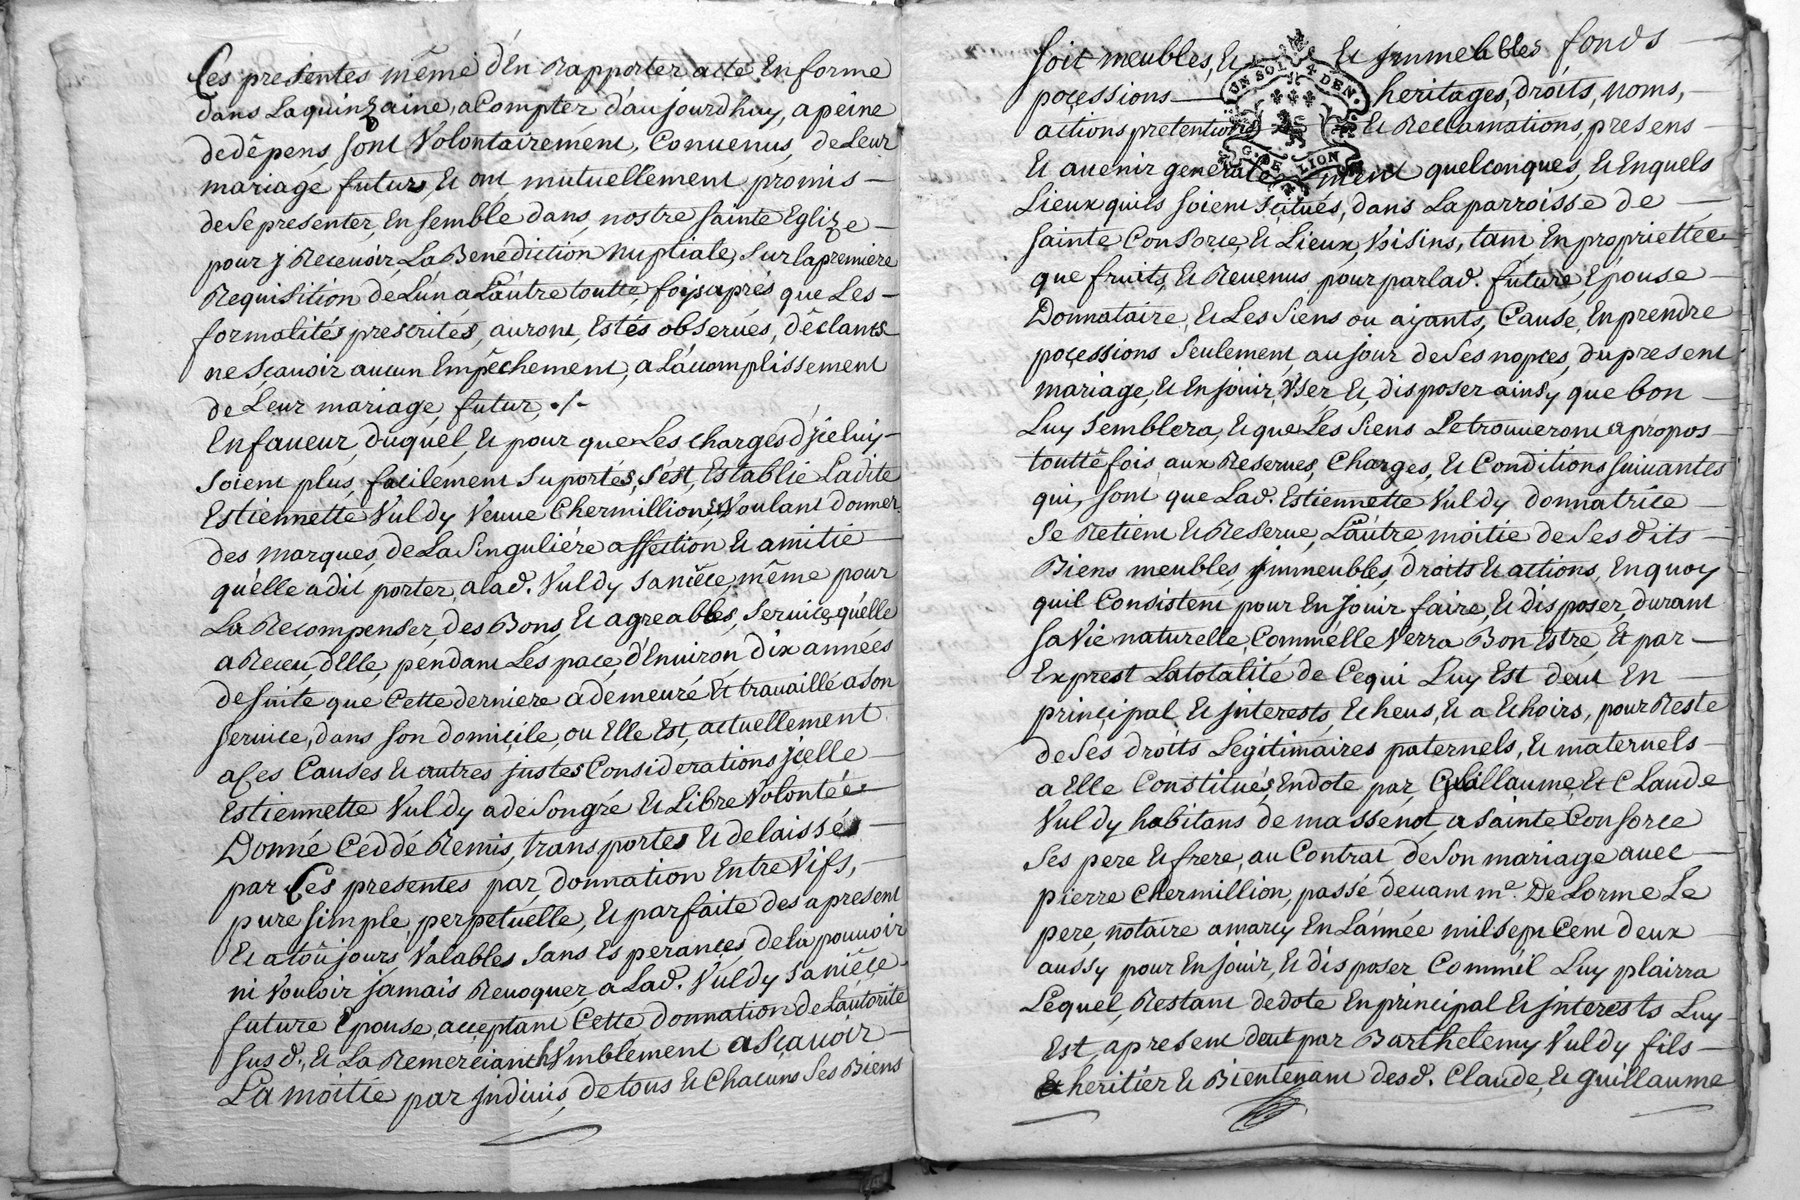 Ces presentes même d'En Rapporter acte En forme
dans La quinzaine, a Compter d'aujourdhuy, a peine
de dêpens sont Volontairement, Convenus, de Leur
mariage futur, Et ont mutuellement promis –
de Se presenter, En semble dans nostre Sainte Eglize –
pour y Recevoir La Benediction Nuptiale, Sur la premiere
Requisition de L'un a L'autre toutte fois aprés que Les –
formalités prescrites, auront, Estés observés, dêclants
ne Sçavoir aucun Empêchement, a L'acomplissement
de Leur mariage, futur, ./-
En faveur, duquel, Et pour que Les charges d'jceluy –
Soient plus, facilement Suportés, s'est, Establie Ladite
Estiennette Vuldy Veuve Chermillion, Voulant donner
des marques, de La Singuliére affection Et amitie –
qu'elle a dit porter, a lad. Vuldy Sa niéce, même pour
La Recompenser, des Bons, Et agreables, Services, qu'elle
a Receu, d'Elle, pendant Les pace, d'Environ, dix années
de Suite que Cette derniere a demeuré Et travaillé a son
service, dans son domicile, ou Elle Est, actuellement
a Ces Causes Et autres justes Considerations jcelle –
Estiennette Vuldy a de Son gré Et Libre Volontée
Donné Ceddé Remis, transportes Et delaissés –
par Ces presentes par, donnation Entre Vifs, –
pure simple, perpetuelle, Et parfaite des a present
Et a toûjours Valables Sans Es perances de la pouvoir
ni Vouloir jamais Revoquer, a Lad. Vuldy Sa niéce –
future Epouse, acceptant Cette donnation de L'autorité
sus d., Et La Remerciant humblement a Sçavoir –
La moitie par jndivis, de tous Et Chacuns Ses Biens
Soit meubles, Et Et jmmeubles fonds –
UN SOL 4 DEN.
poçessions – heritages, droits, noms, –
actions pretentions Et Reclamations, presens –
G. DE LION
Et avenir generalement quelconques, Et Enquels
Lieux quils soient scitués, dans La parroisse de –
Sainte Consorce, Et Lieux, Voisins, tant En propriettée
que fruits, Et Revenus pour par lad. future, Epouse –
Donnataire, Et Les Siens ou ayants, Cause, En prendre
poçessions Seulement, au jour de Ses nopces, du present
mariage, Et En jouir, User Et, disposer ainsy que bon –
Luy Semblera, Et que Les Siens Le trouveront a propos –
toutte fois aux Reserves, Charges, Et Conditions Suivantes
qui, sont que Lad. Estiennette Vuldy donnatrice –
Se Retient Et Reserve, L'autre moitie de Ses dits –
Biens meubles jmmeubles, droits Et actions, En quoy
quil Consistent pour En jouir faire, Et disposer, durant
Sa Vie naturelle, Comm'elle Verra Bon Estre, Et par –
Exprest La totalité de Ce qui Luy Est deut En –
principal, Et jnterests, Echeus, Et a Echoirs, pour Reste
de Ses droits Legitimaires paternels, Et maternels –
a Elle Constitués, En dote par, Guillaume, Et Claude
Vuldy habitans de massenot, a Sainte Consorce
Ses pere Et frere, au Contrat, de Son mariage avec –
pierre Chermillion, passé devant me. De Lorme Le
pere, notaire a marcy En L'année mil sept Cent deux –
aussy pour En jouir, Et disposer Comm'il Luy plairra
Lequel, Restant de dote En principal Et jnterests Luy
Est, a present deut par Barthelemy Vuldy fils –
heritier Et Bientenant desd. Claude, Et Guillaume